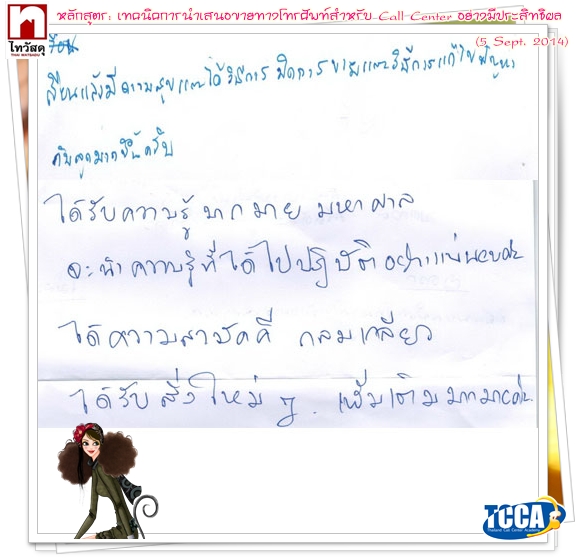 หลักสูตร: เทคนิคการนำเสนอขายทางโทรศัพท์สำหรับ Call Center อย่างมีประสิทธิผล
(5 Sept. 2014)
ไทวัสดุ
THAI WATSADU
เรียนแล้วมีความสุขและได้วิธีการปิดการขายและวิธีการแก้ไขปัญหา
ได้รับความรู้มากมายมหาศาล
จะนำความรู้ที่ได้ไปปฏิบัติอย่างแน่นอนค่ะ
ได้ความสามัคคี กลมเกลียว
ได้รับสิ่งใหม่ ๆ เพิ่มเติมมากมายค่ะ
TCCA
Thailand Call Center Academy